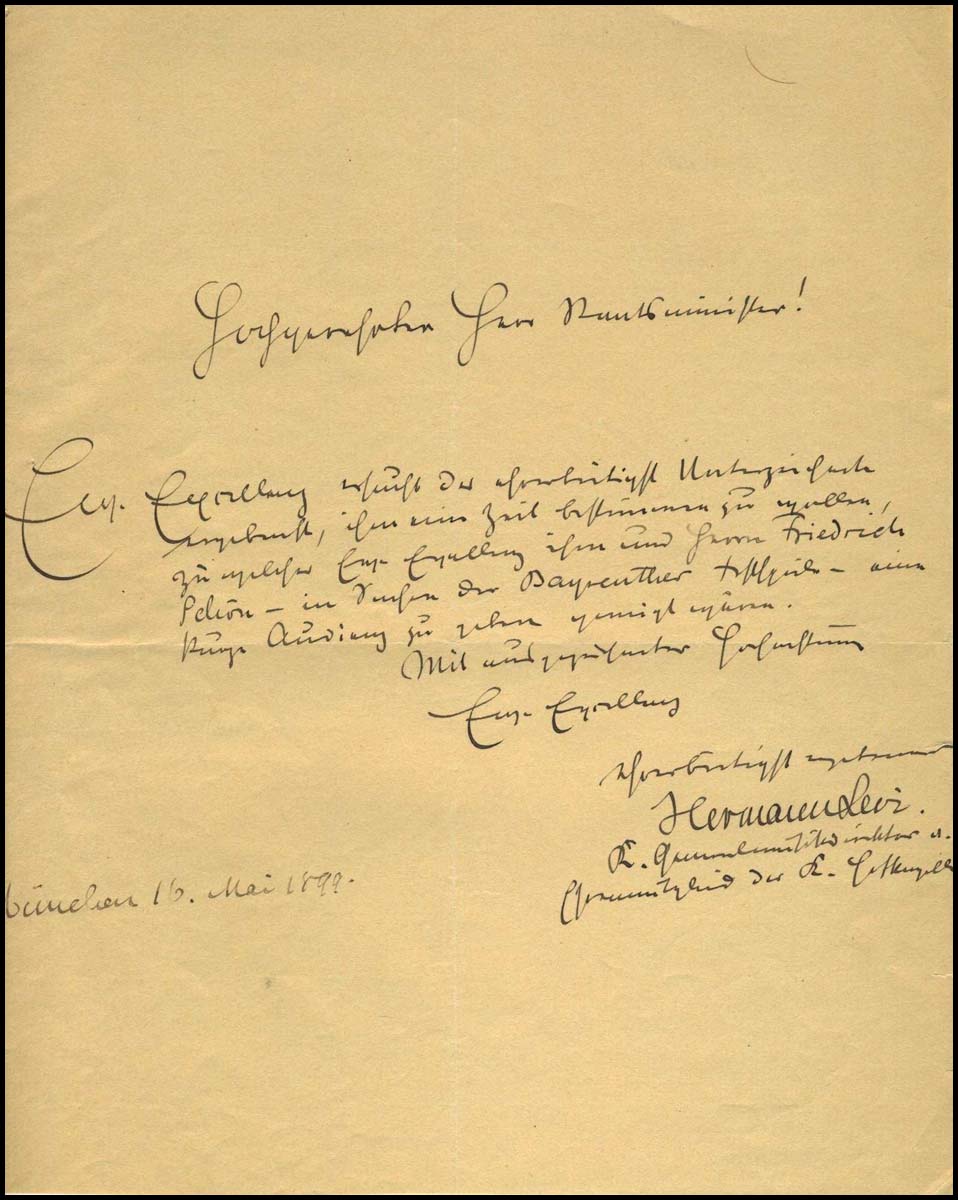 Hochgeehrter Herr Staatsminister!
Eure Excellenz ersucht der ehrerbietigst Unterzeichnete
ergebenst, ihm eine Zeit bestimmen zu wollen,
zu welcher Eure Excellenz ihm und Herrn Friedrich
Schön – in Sachen der Bayreuther Festspiele – eine
kurze Audienz zu geben geneigt wären.
Mit ausgezeichneter Hochachtung
Eurer Excellenz
ehrerbietigst ergebener
Hermann Levi.
K. Generalmusikdirektor u.
Ehrenmitglied der K. Hofkapelle
München 16. Mai 1899.